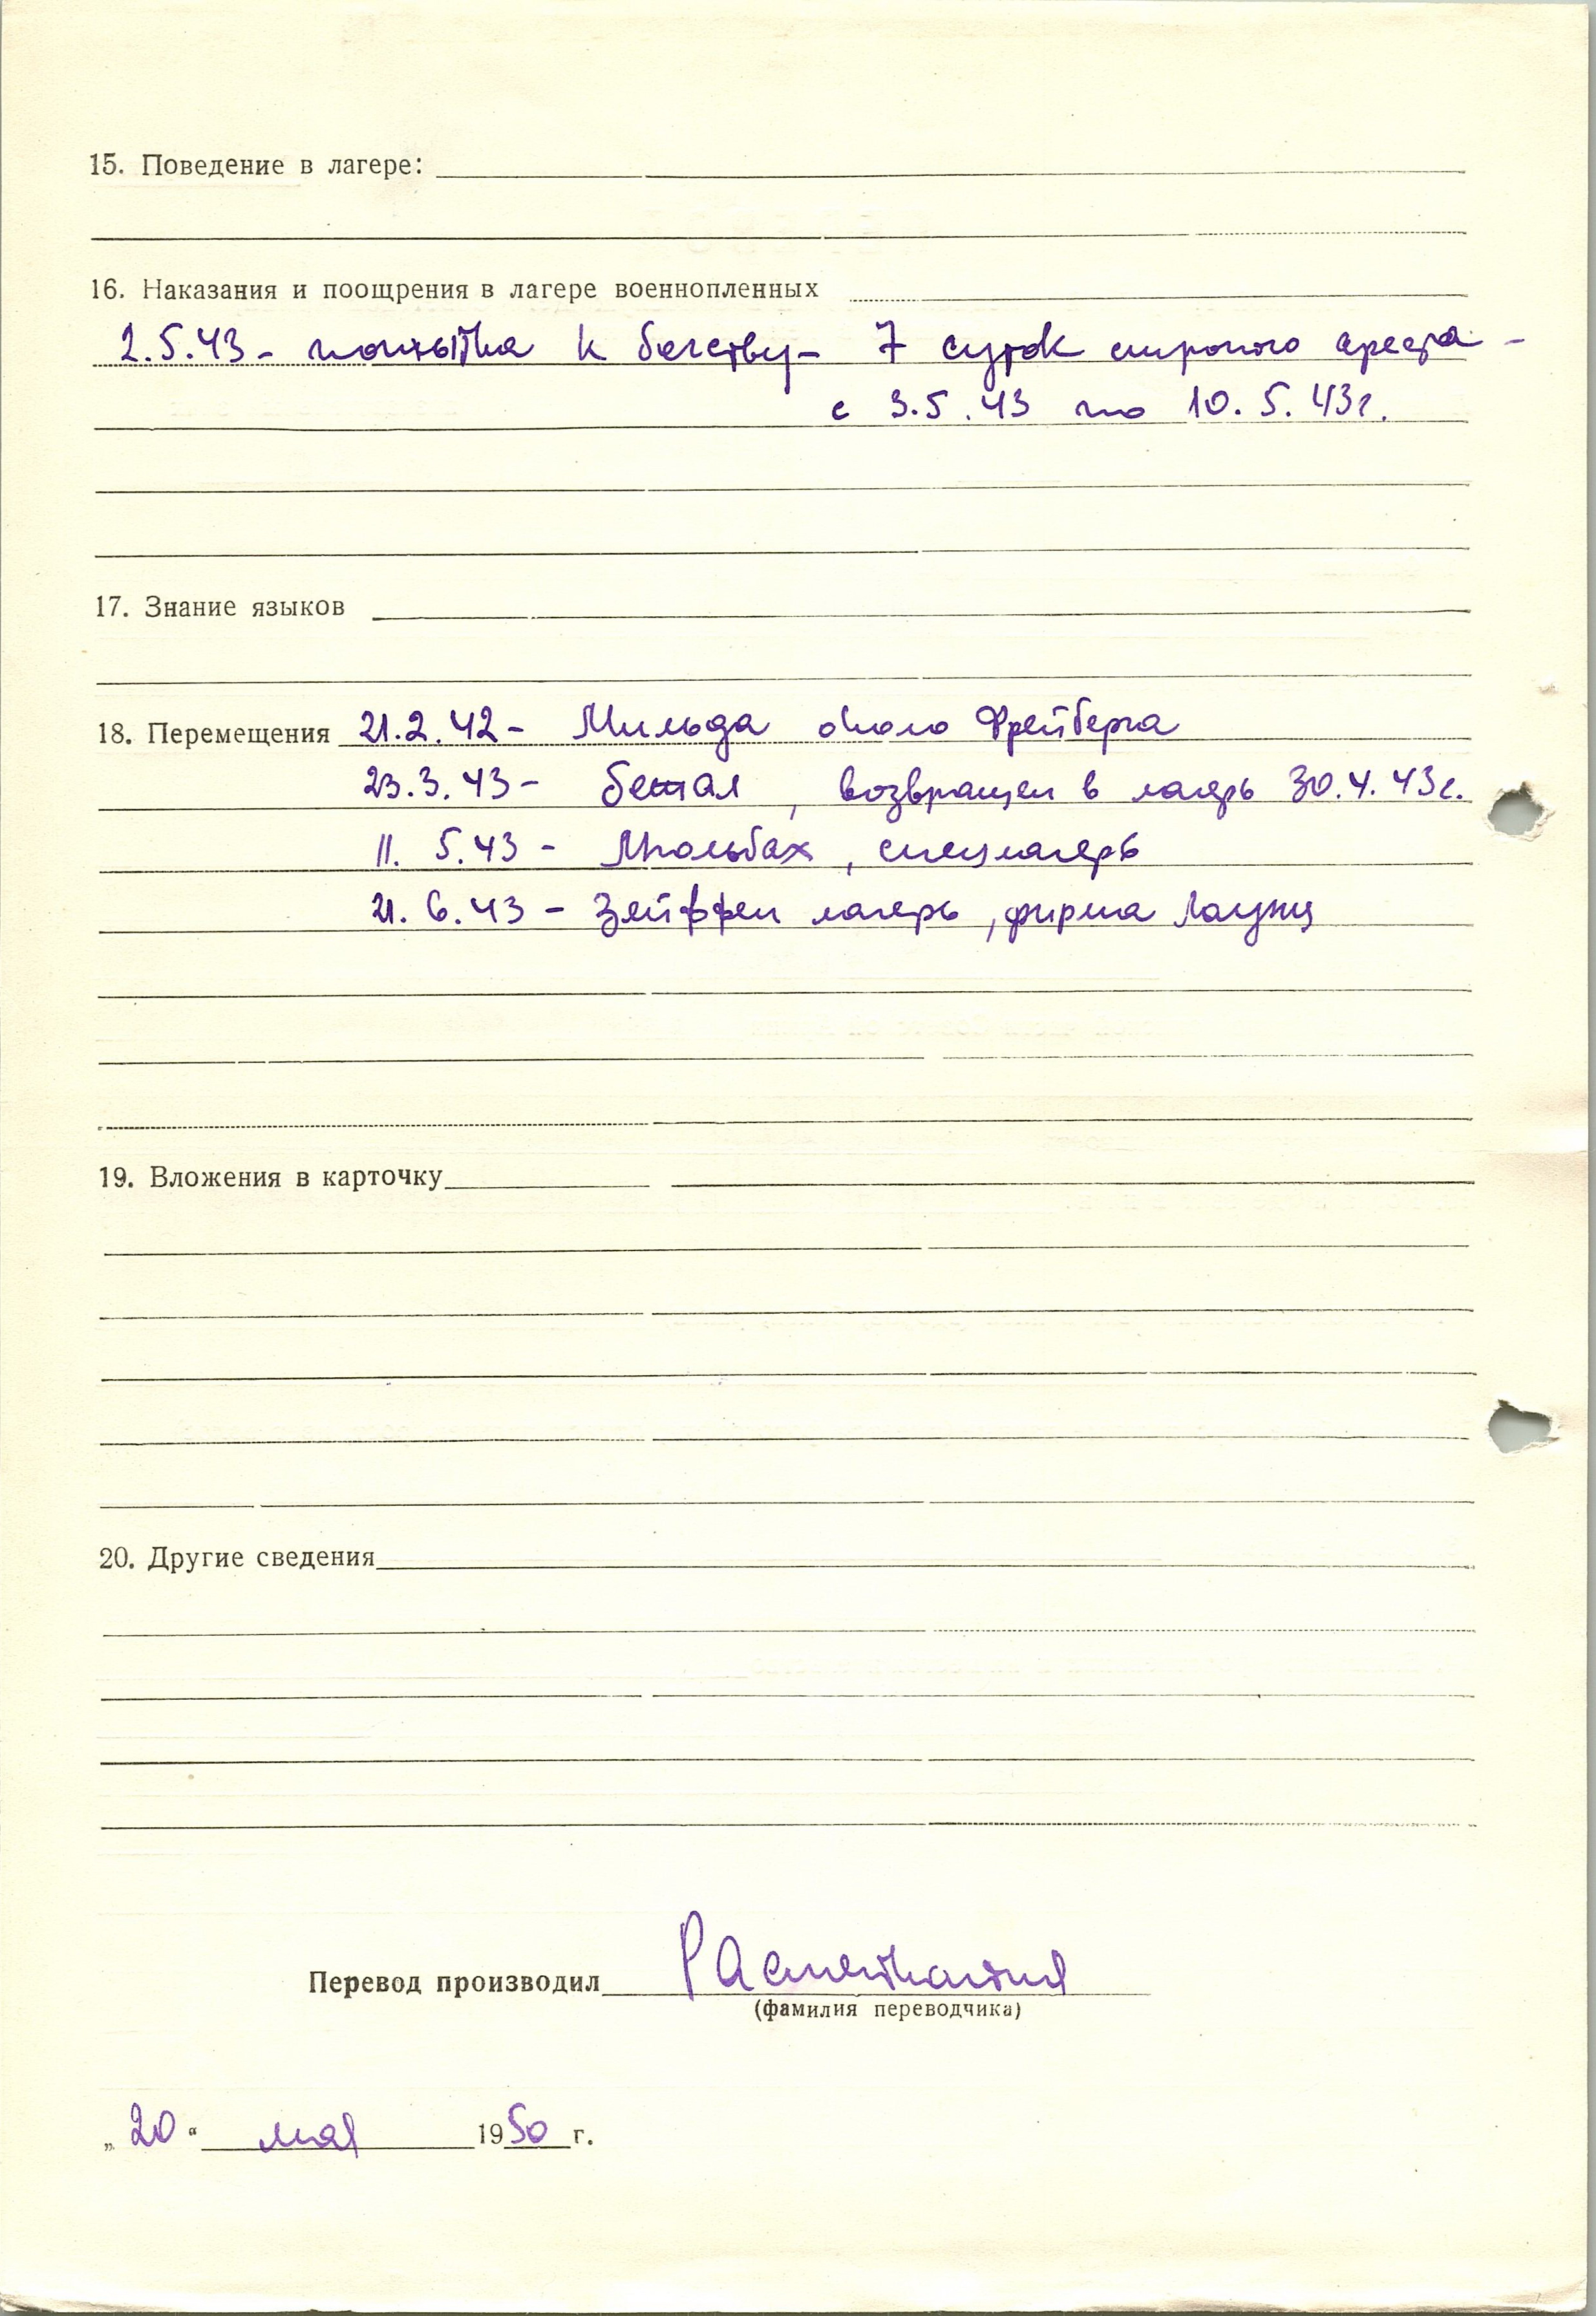 15. Поведение в лагере:
16. Наказания и поощрения в лагере военнопленных
2.5.43 - попытка к бегству - 7 суток строгого ареста -
с 3.5.43 по 10.5.43г.
17. Знание языков
18. Перемещения 21.2.42 - Мильда около Фрейберга
23.3.43 - бежал, возвращен в лагерь 30.4.43г.
11.5.43 - Мюльбах, спецлагерь
21.6.43 - Зейффен лагерь, фирма
19. Вложения в карточку
20. Другие сведения
Перевод производил
(фамилия переводчика)
„20“ мая 1950 г.